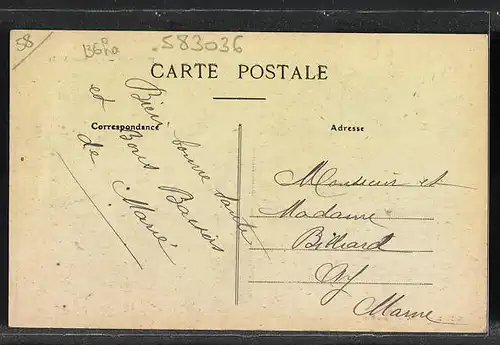 58
583036
CARTE POSTALE
Correspondance
Adresse
Bien bonne santé
et Bons Baisers
de Marie
Monsieur et
Madame
Billiard
Ay
Marne